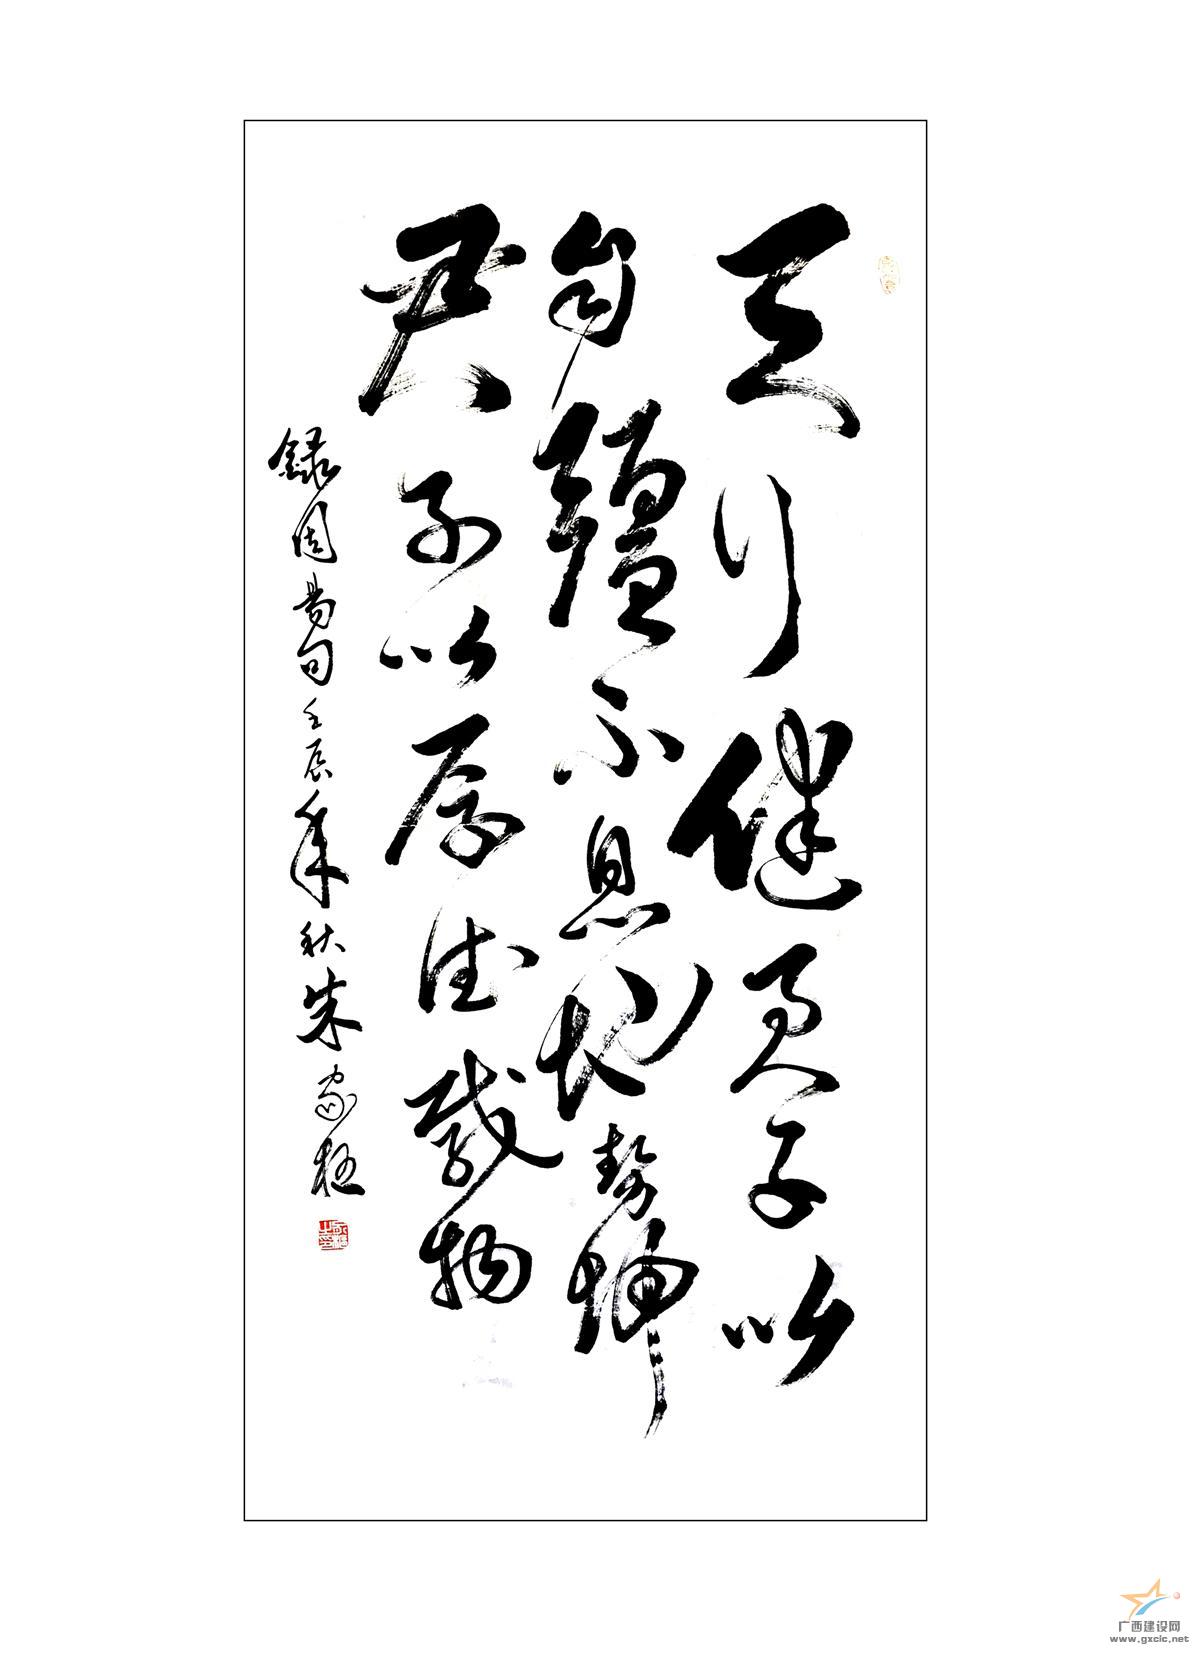 天行健君子以
自疆不息地势坤
君子以厚德载物
録周易句壬辰年秋朱家桂
广西建设网
www.gxcic.net